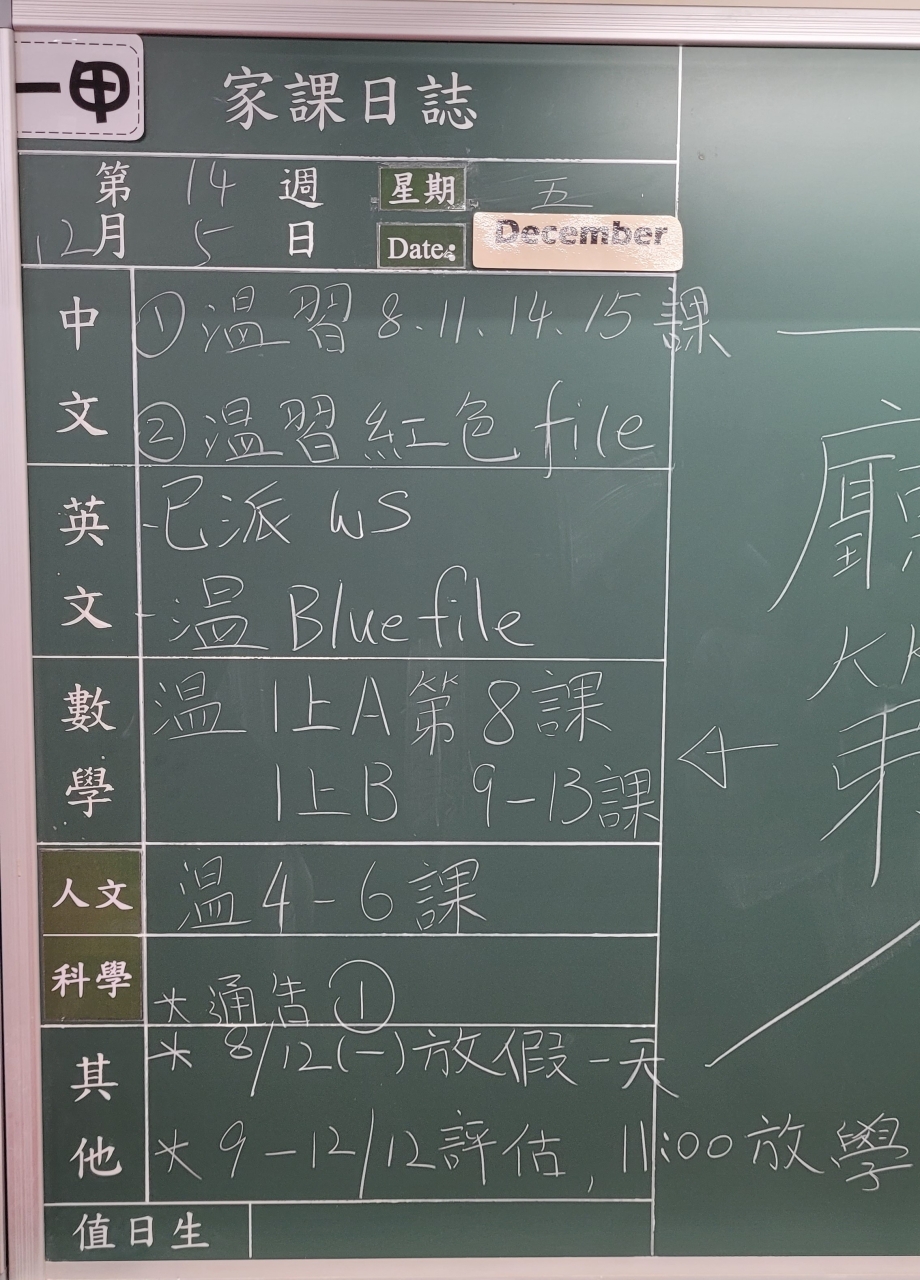 一甲
家課日誌
第 14 週 星期 五
12月 5 日 Date: December
中文
①温習8、11、14、15課
②温習紅色file
英文
-已派 WS
-温 Blue file
數學
温 1上A 第8課
1上B 9-13課
人文
温4-6課
科學
*通告①
其他
* 8/12(一)放假一天
* 9-12/12評估, 11:00放學
值日生